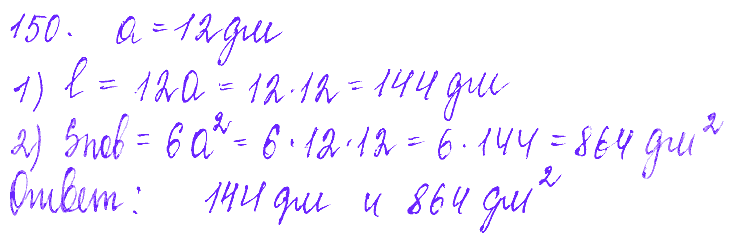 150. a = 12 дм
1) l = 12a = 12·12 = 144 дм
2) Sпов = 6a² = 6·12·12 = 6·144 = 864 дм²
Ответ: 144 дм и 864 дм²